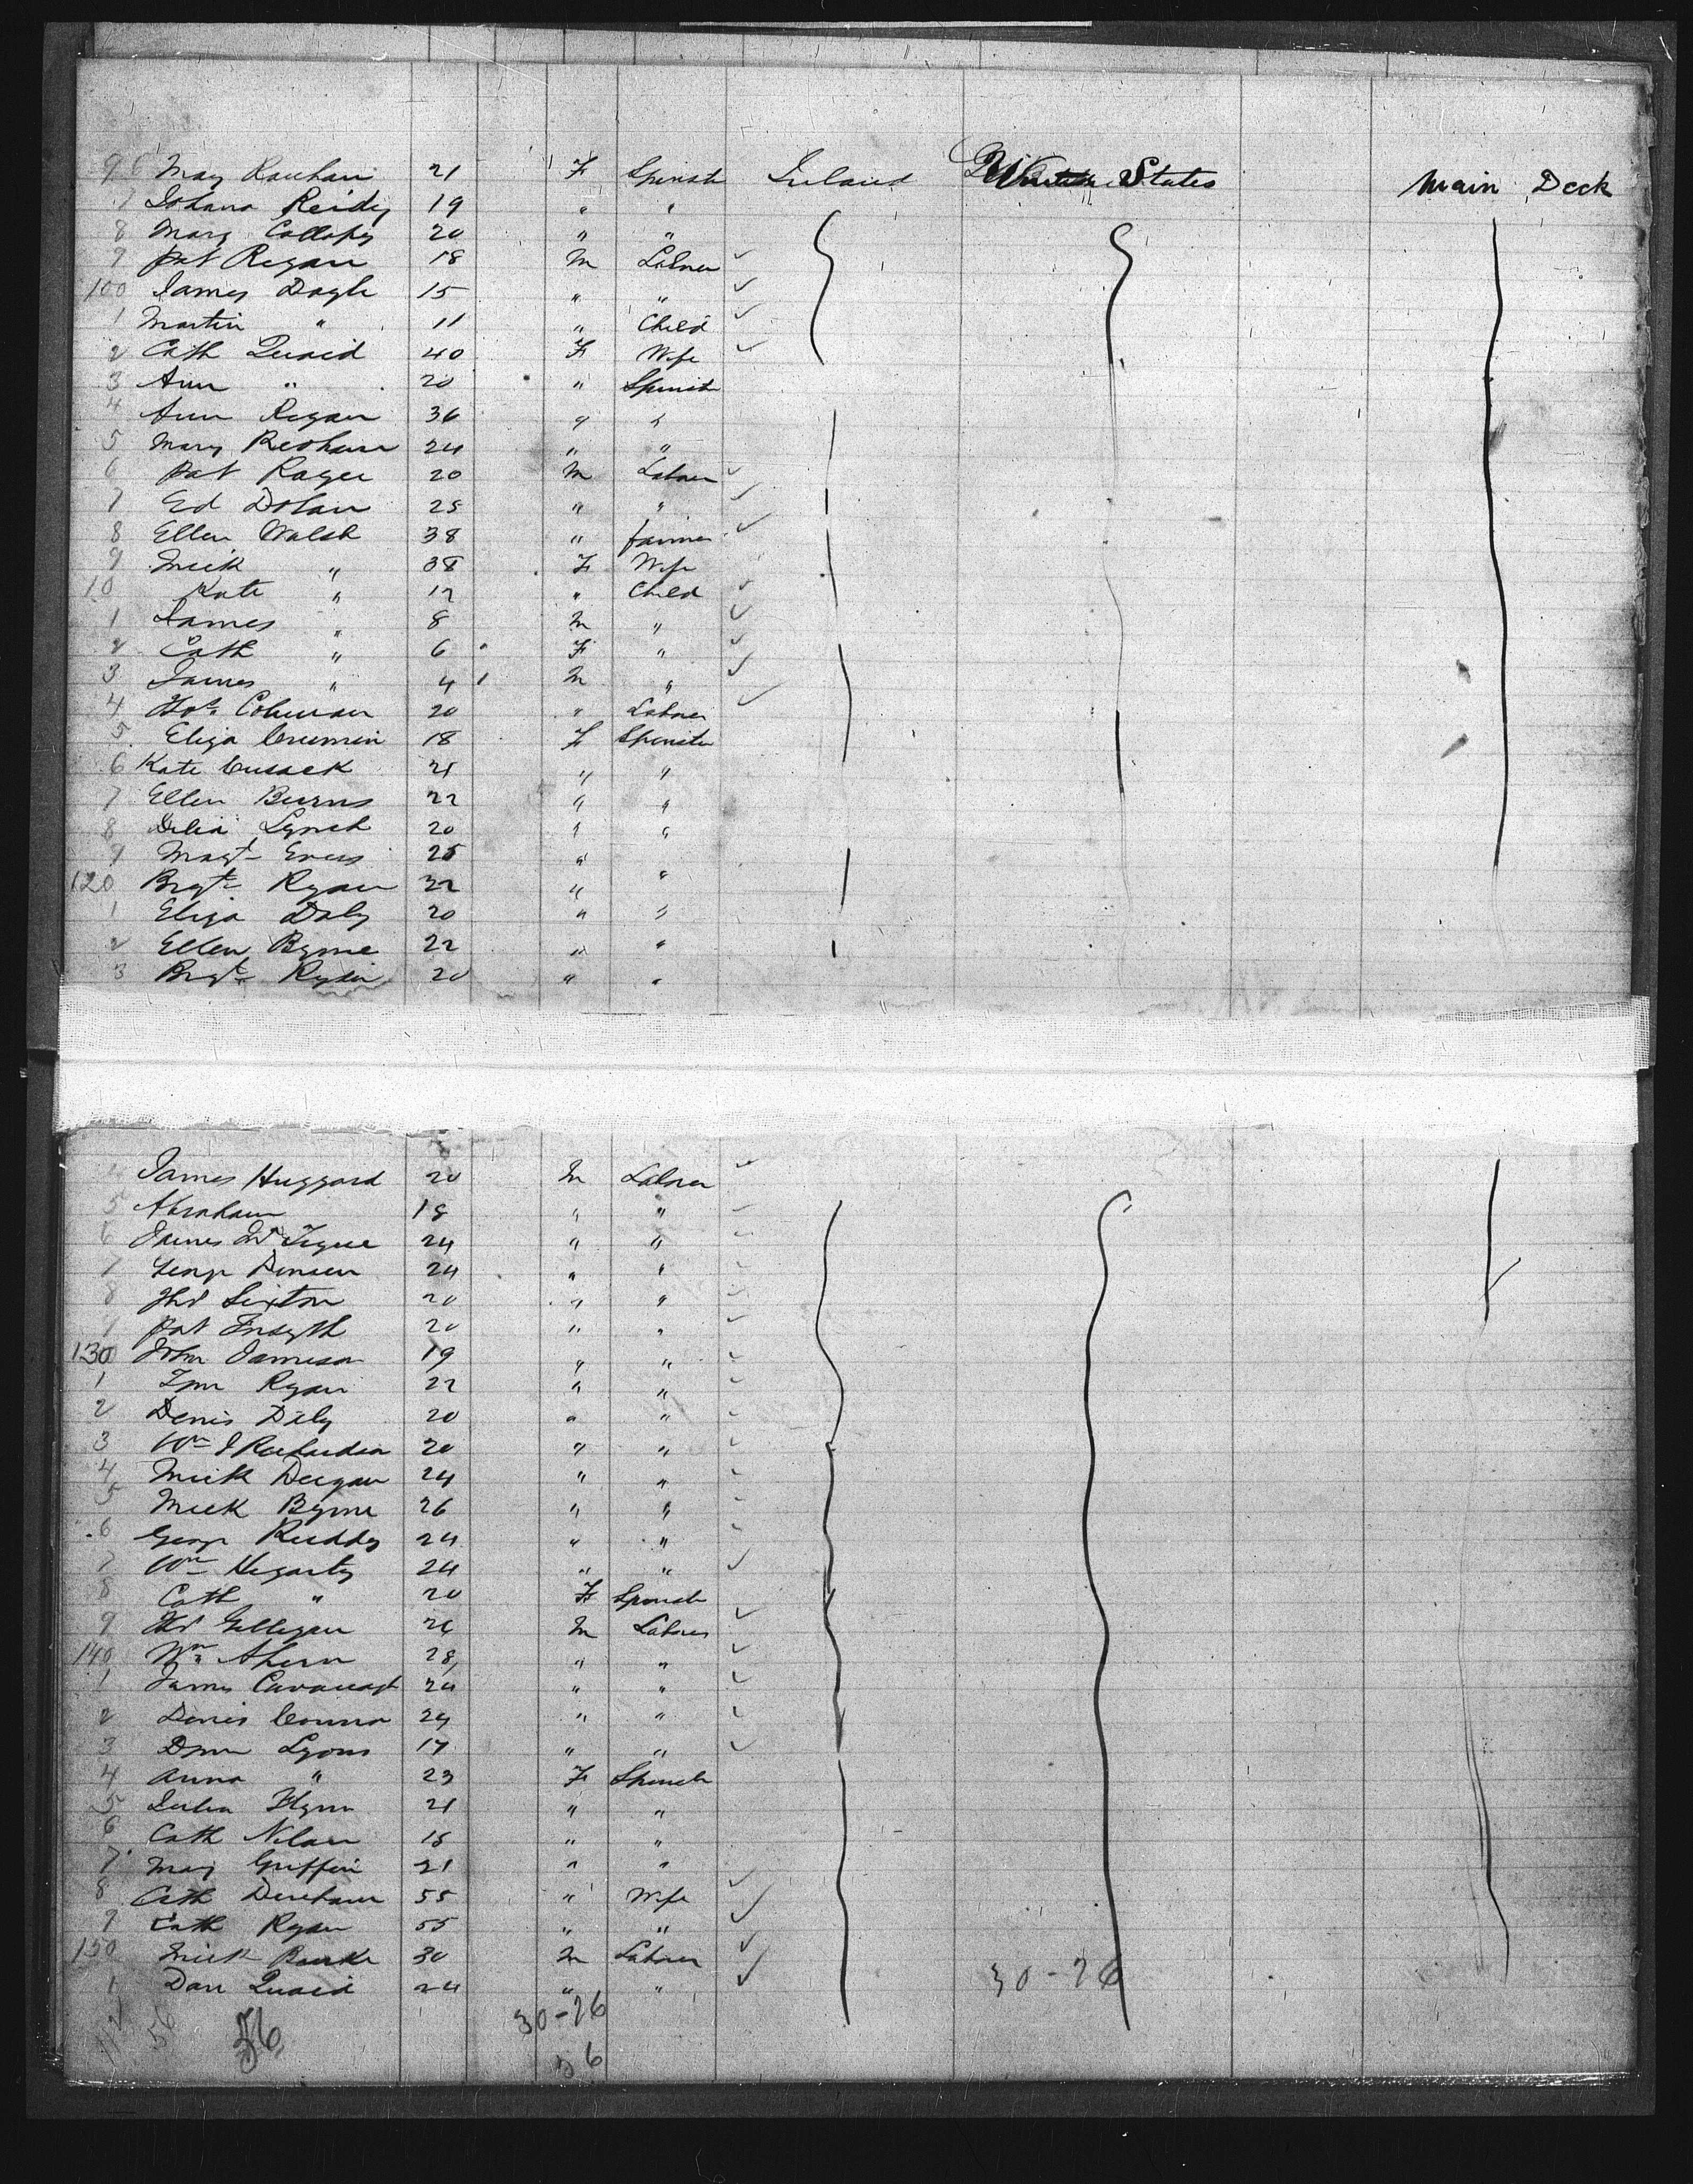 96 Mary 21 F Spinst Ireland United States Main Deck
7 Johana Reidy 19 " "
8 Mary Collopy 20 " "
9 Pat Regan 18 M Labrer
100 James Doyle 15 " "
1 Martin " 11 " Child
2 Cath Quaid 40 F Wife
3 Ann " 20 " Spinst
4 Ann Regan 36 " "
5 Mary 24 " "
6 Pat 20 M Labrer
7 Ed Dolan 25 " "
8 Ellen Walsh 38 " farmer
9 Mick " 38 F Wife
10 Kate " 12 " Child
1 James " 8 M "
2 Cath " 6 F "
3 James " 4 M "
4 Thos Coleman 20 " Labrer
5 Eliza Crimmin 18 F Spinster
6 Kate Cusack 21 " "
7 Ellen Burns 22 " "
8 Delia Lynch 20 " "
9 Magt 25 " "
120 Brgt Ryan 22 " "
1 Eliza Daly 20 " "
2 Ellen Byrne 22 " "
3 Brgt Ryan 20 " "
James Huggard 20 M Labrer
5 Abraham 18 " "
6 James McTigue 24 " "
7 George 24 " "
8 Sexton 20 " "
9 Pat Forsyth 20 " "
130 John Jameson 19 " "
1 Ryan 22 " "
2 Denis Daly 20 " "
3 Wm J Richardson 20 " "
4 Mick Deegan 24 " "
5 Mick Byrne 26 " "
6 George Ruddy 24 " "
7 Wm Hegarty 24 " "
8 Cath " 20 F Spinst
9 Gilligan 26 M Labrer
140 Wm Ahern 28 " "
1 James Cavanagh 24 " "
2 Denis Connor 24 " "
3 Lyons 17 " "
4 Anna " 23 F Spinst
5 Julia Flynn 21 " "
6 Cath Nolan 18 " "
7 Mary Griffin 21 " "
8 Cath 55 " Wife
9 Cath Ryan 55 " "
150 Mick Bourke 30 M Labrer
1 Dan Quaid 24 " " 30-26
56 56 30-26
56